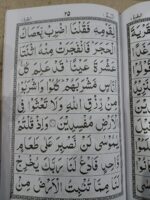 ٢٥
لِقَوْمِهٖ فَقُلْنَا اضْرِبْ بِّعَصَاكَ
الْحَجَرَ ؕ فَانْفَجَرَتْ مِنْهُ اثْنَتَا
عَشْرَةَ عَيْنًا ؕ قَدْ عَلِمَ كُلُّ
اُنَاسٍ مَّشْرَبَهُمْ ؕ كُلُوْا وَاشْرَبُوْا
مِنْ رِّزْقِ اللّٰهِ وَلَا تَعْثَوْا فِی
الْاَرْضِ مُفْسِدِیْنَ ۝ وَاِذْ قُلْتُمْ
یٰمُوْسٰی لَنْ نَّصْبِرَ عَلٰی طَعَامٍ
وَّاحِدٍ فَادْعُ لَنَا رَبَّكَ یُخْرِجْ
لَنَا مِمَّا تُنْۢبِتُ الْاَرْضُ مِنْۢ